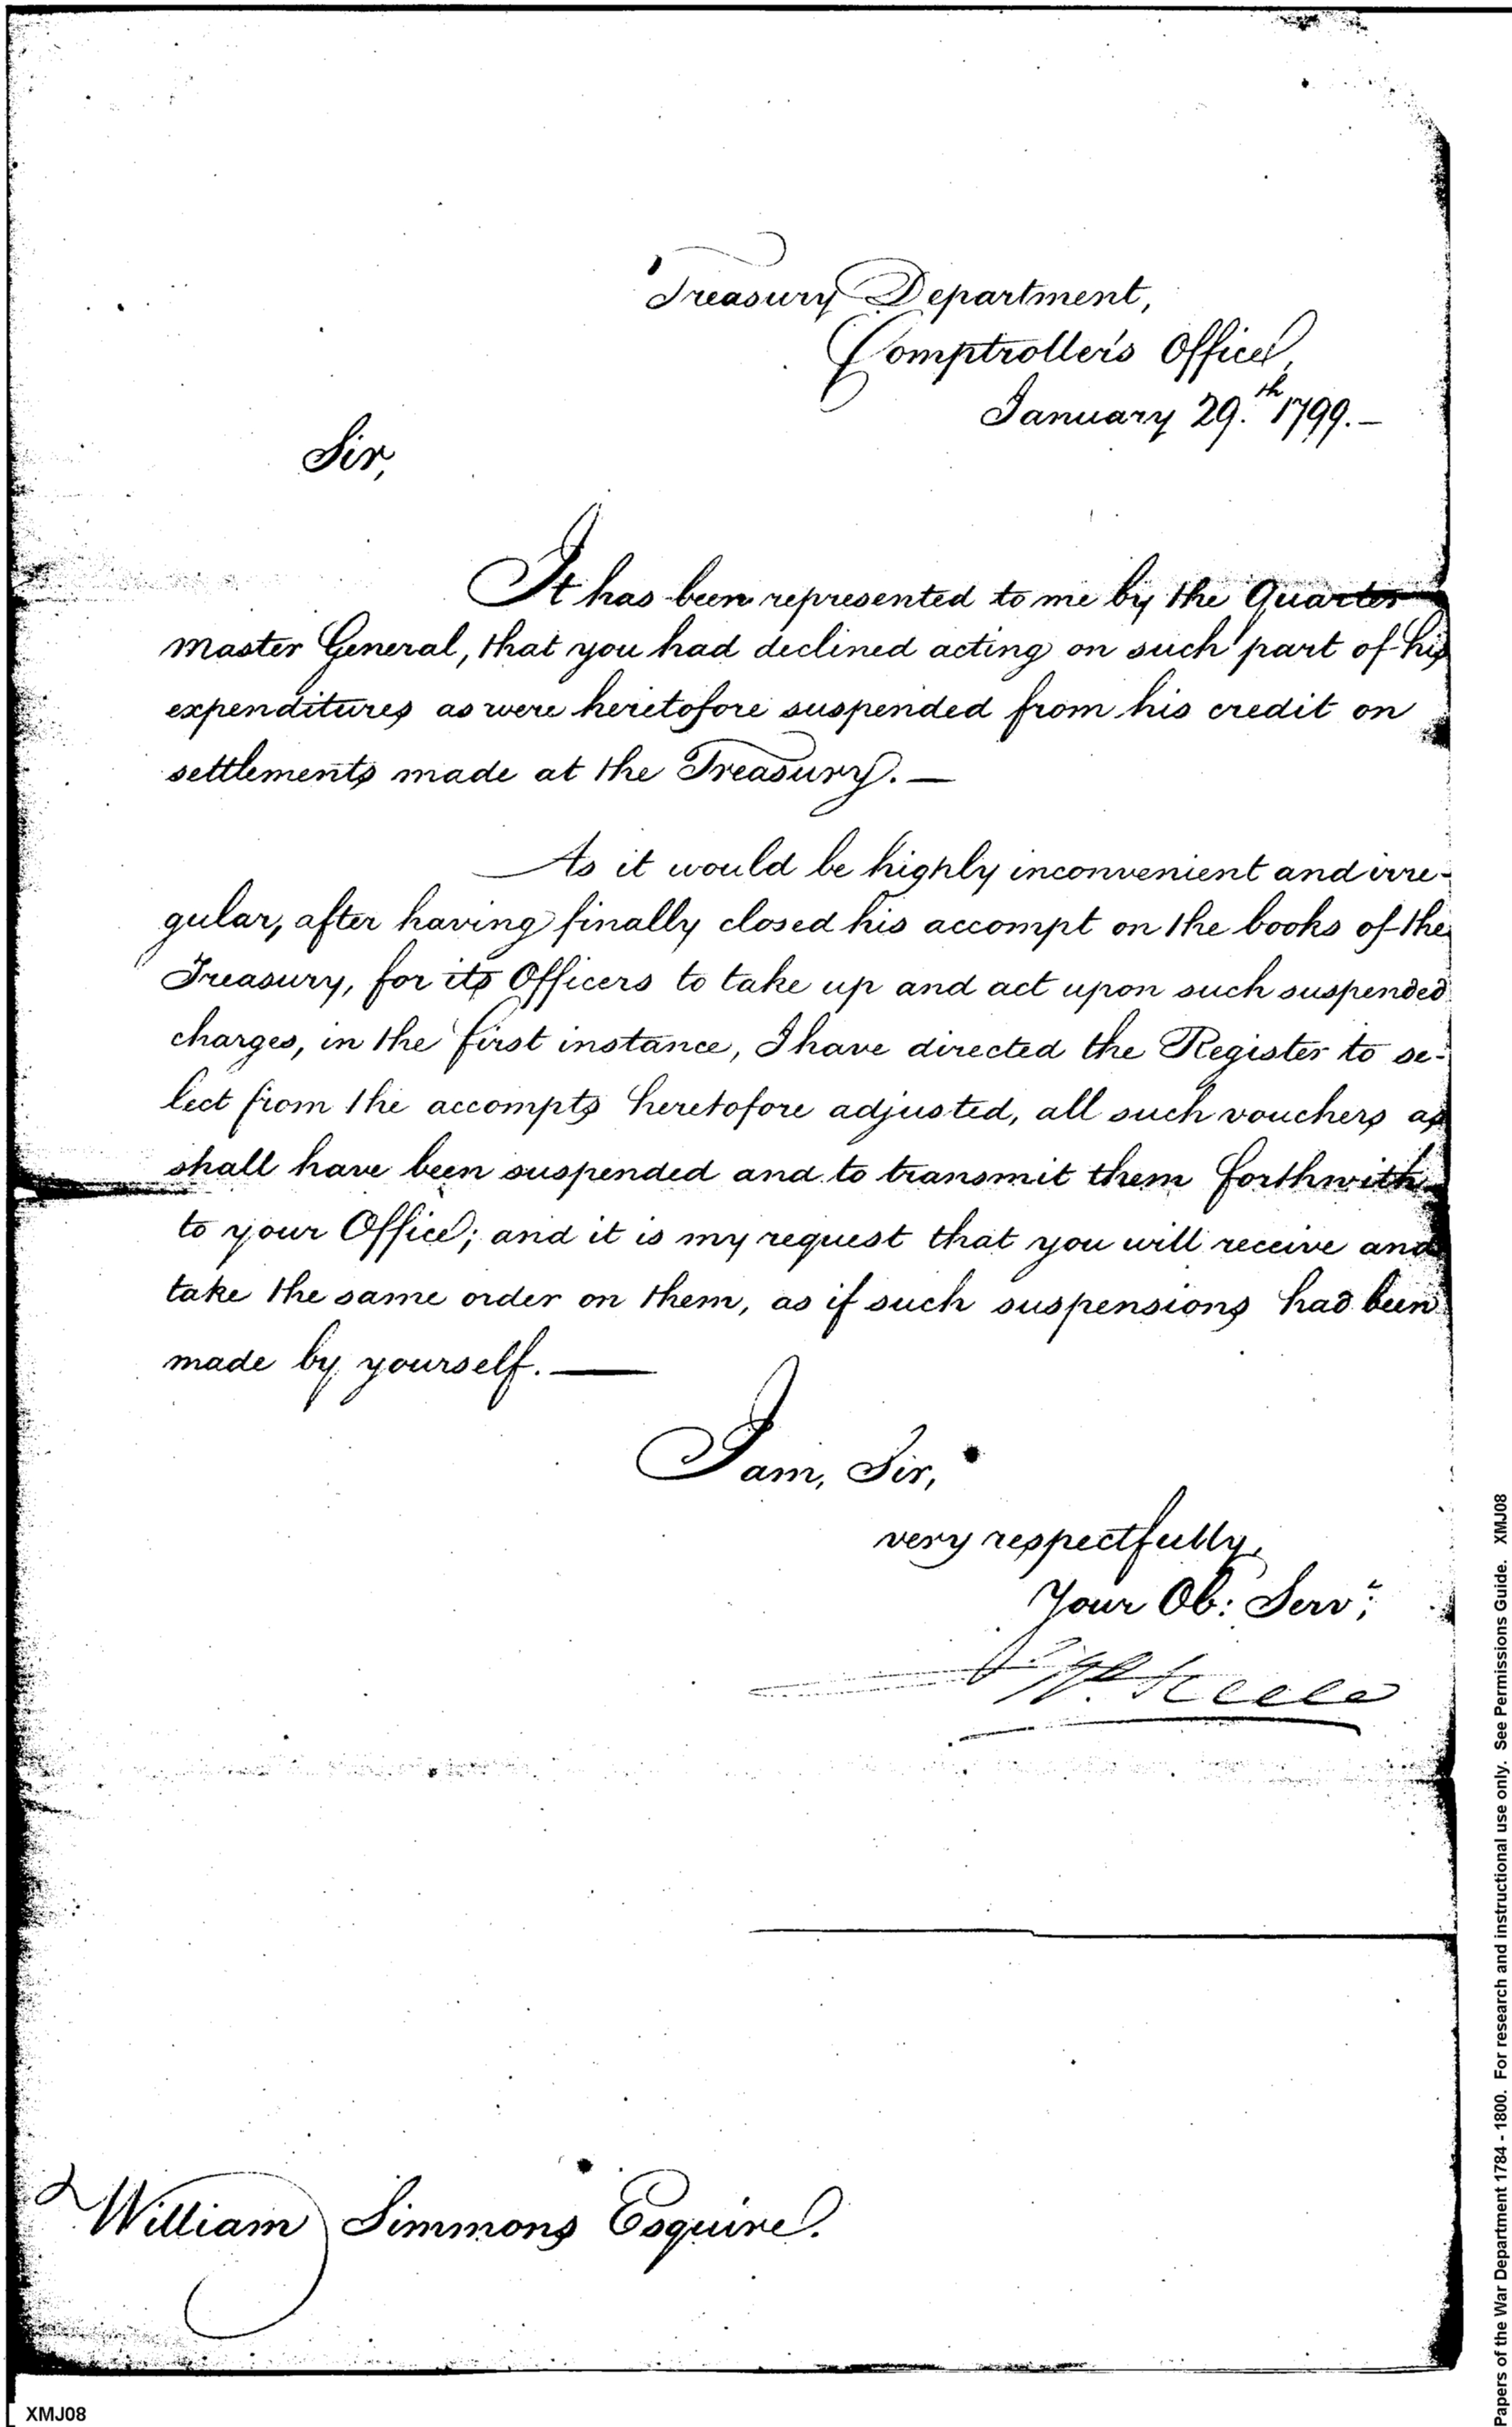 Treasury Department,
Comptroller's Office,
January 29.th 1799.—
Sir,
It has been represented to me by the Quarter
master General, that you had declined acting on such part of his
expenditures as were heretofore suspended from his credit on
settlements made at the Treasury.—
As it would be highly inconvenient and irre-
gular, after having finally closed his accompt on the books of the
Treasury, for its Officers to take up and act upon such suspended
charges, in the first instance, I have directed the Register to se-
lect from the accompts heretofore adjusted, all such vouchers as
shall have been suspended and to transmit them forthwith
to your Office; and it is my request that you will receive and
take the same order on them, as if such suspensions had been
made by yourself.—
I am, Sir,
very respectfully,
Your Ob: Servt;
Jno. Steele
William Simmons Esquire.
XMJ08
Papers of the War Department 1784 - 1800. For research and instructional use only. See Permissions Guide. XMJ08